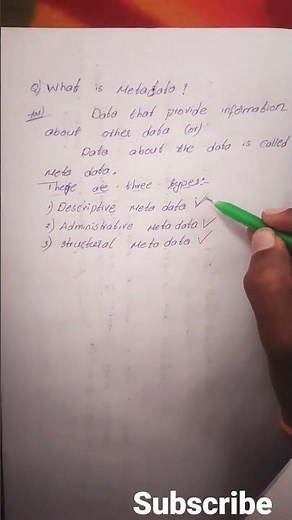 Q) What is Metadata?
Ans) Data that provide information
about other data (or)
Data about the data is called
Meta data.
There are three types:-
1) Descriptive Meta data ✓
2) Administrative Meta data ✓
3) Structural Meta data ✓
Subscribe